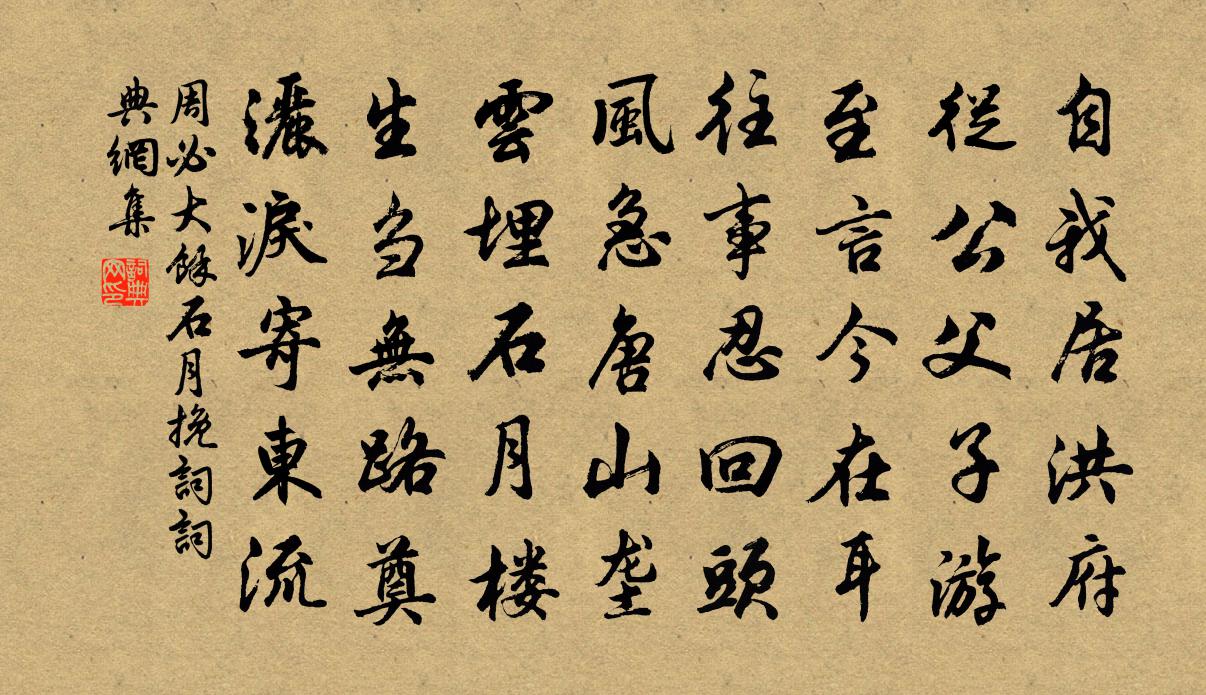 自我居洪府
從公父子游
至言今在耳
往事忍回頭
風急唐山垄
雲埋石月楼
生刍無路奠
灑淚寄東流
周必大餘石月挽詞詞
典網集
詞典网印